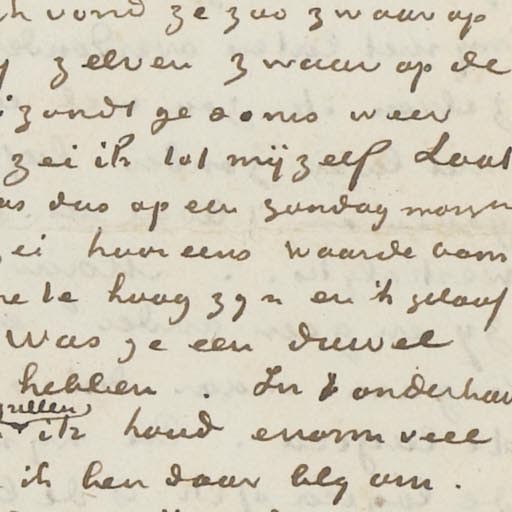 ik vond ze zoo zwaar op
zelven zwaar op de
zondt ge soms weer
zei ik tot mijzelf Laat
was dus op een zondag morgen
zei hoor eens waarde oom
te hoog zyn en ik geloof
Was ge een duivel
hebben. In onderhou
zullen
ik houd enorm veel
ik ben daar bly om.